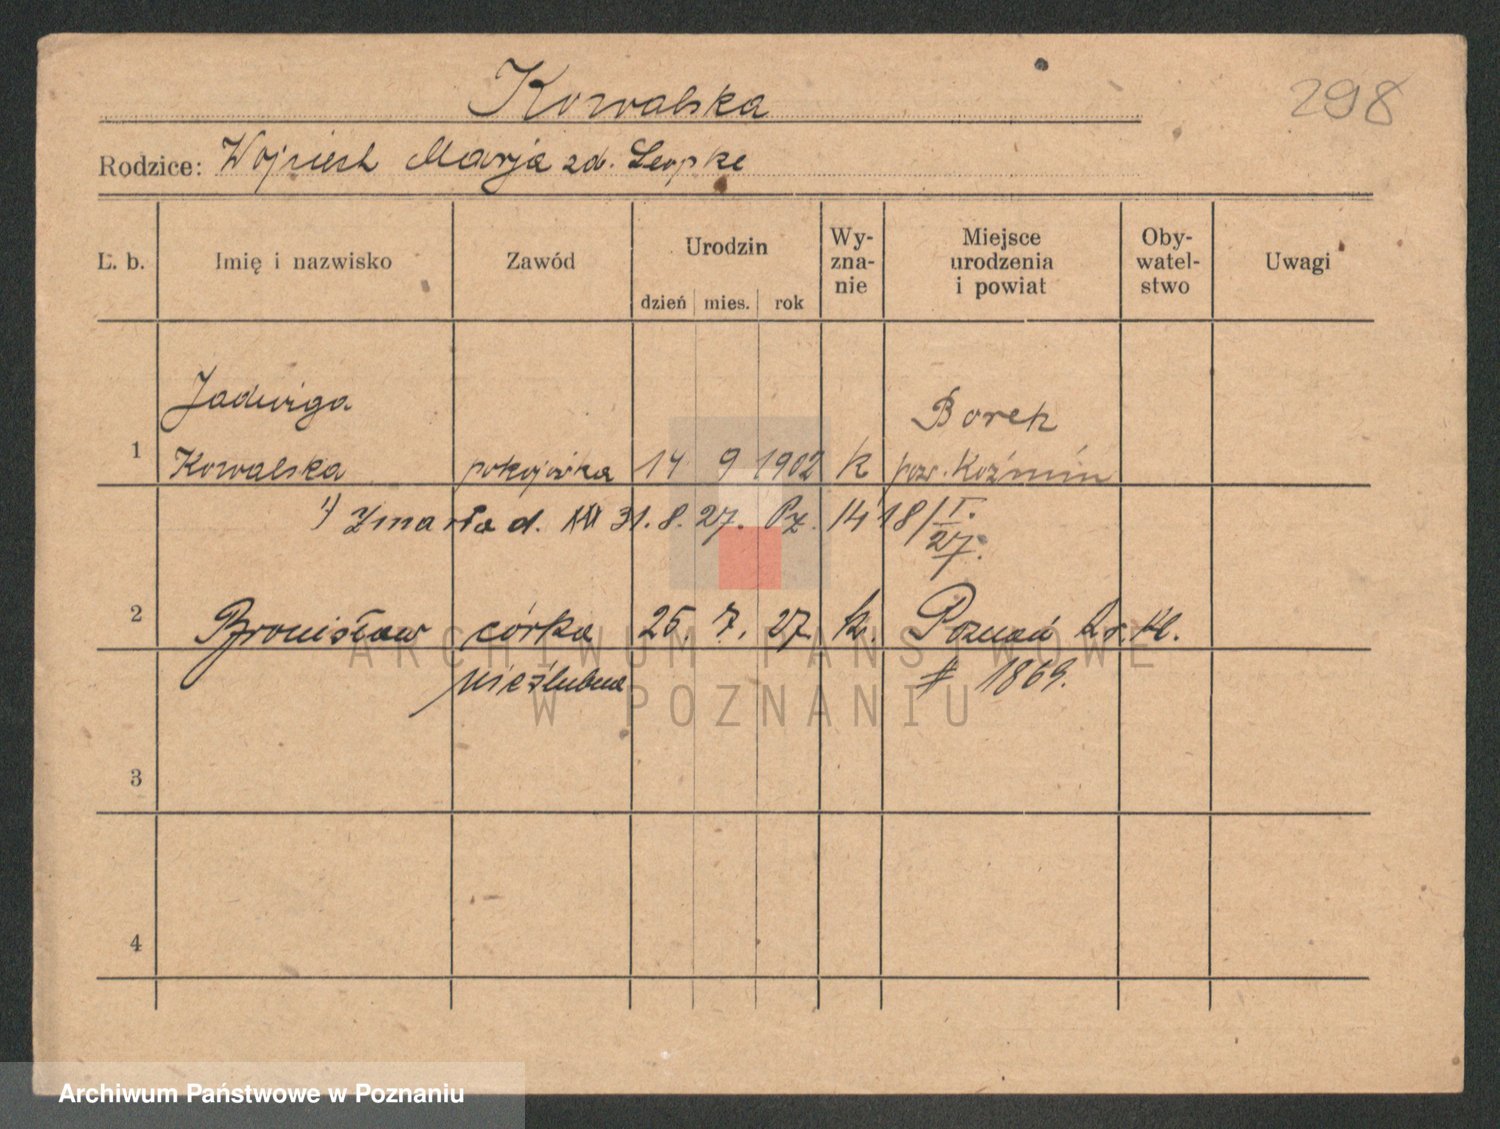 Kowalska
298
Rodzice: Wojciech Marja zd.
L. b. Imię i nazwisko Zawód Urodzin dzień mies. rok Wy-zna-nie Miejsce urodzenia i powiat Oby-watel-stwo Uwagi
1 Jadwiga
Kowalska pokojówka 14 9 1902 k Borek
pow. Koźmin
1) Zmarła d. 31. 8. 27. Pz. 1418/I.
27.
2 Bronisława córka 25. 7. 27. k. Poznań
nieślubna # 1869.
3
4
ARCHIWUM PAŃSTWOWE
W POZNANIU
Archiwum Państwowe w Poznaniu